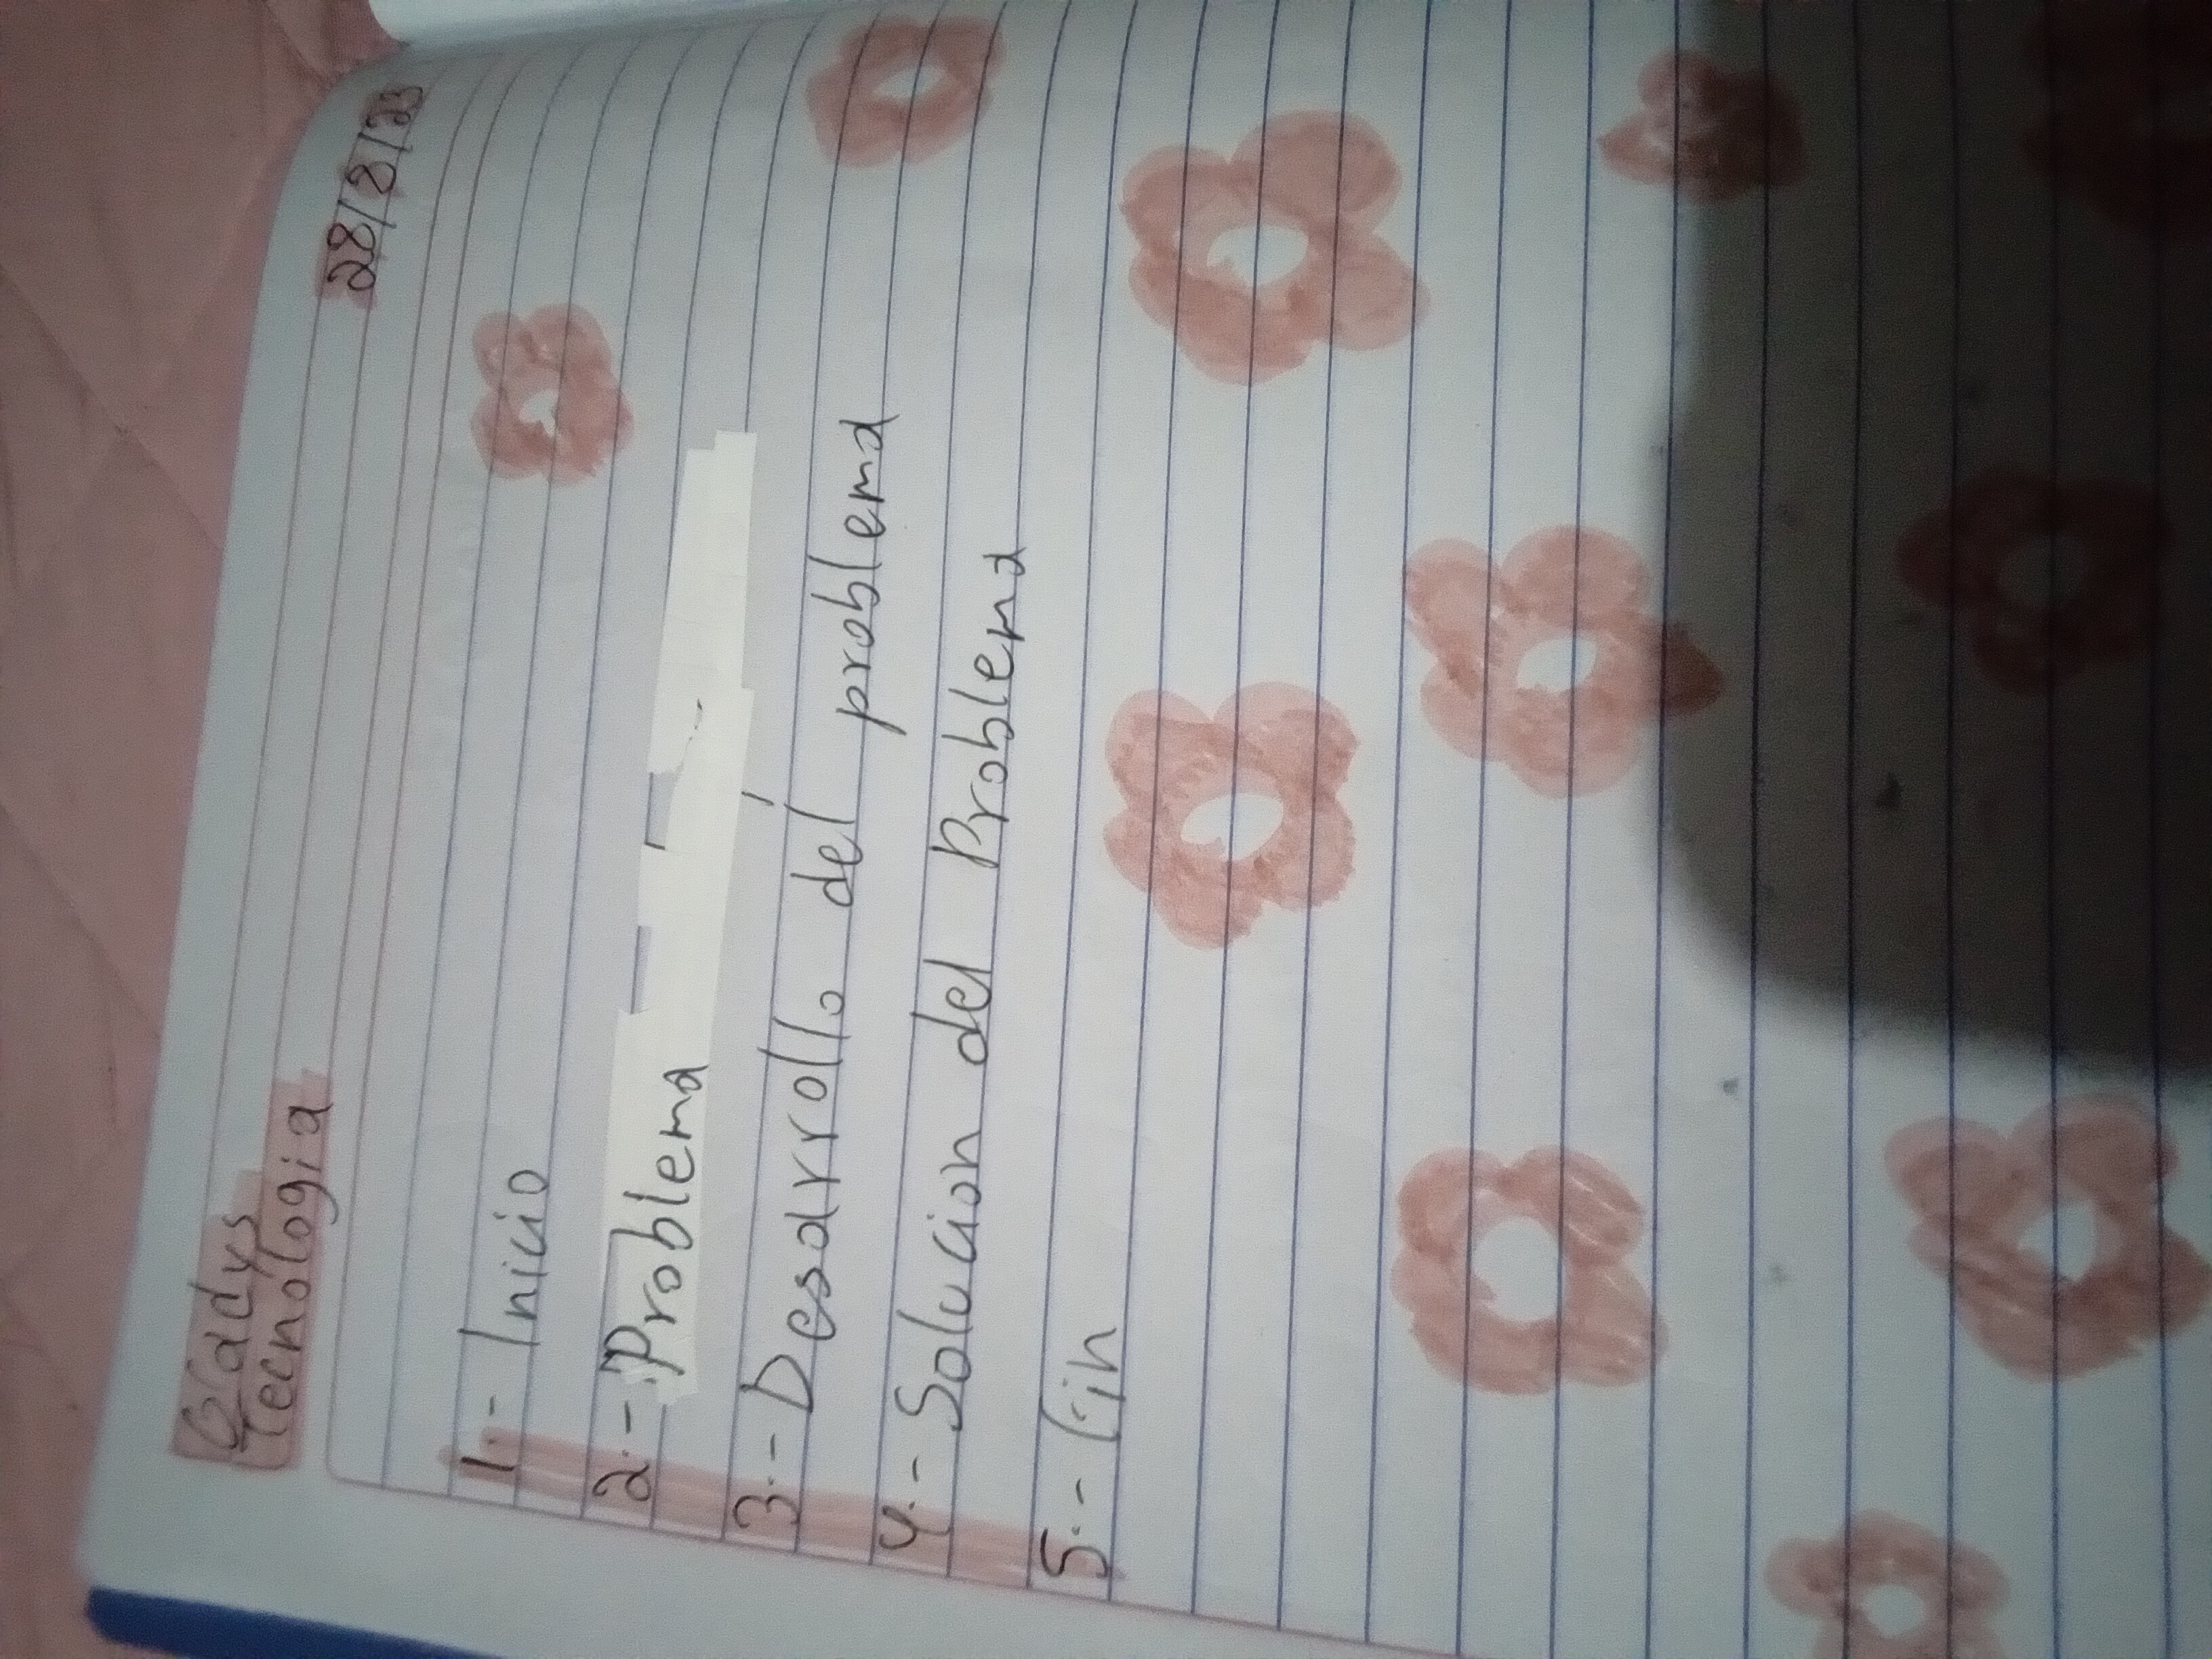 Gladys
28/8/23
Tecnologia
1.- Inicio
2.- Problema
3.- Desarrollo del problema
4.- Solucion del Problema
5.- fin